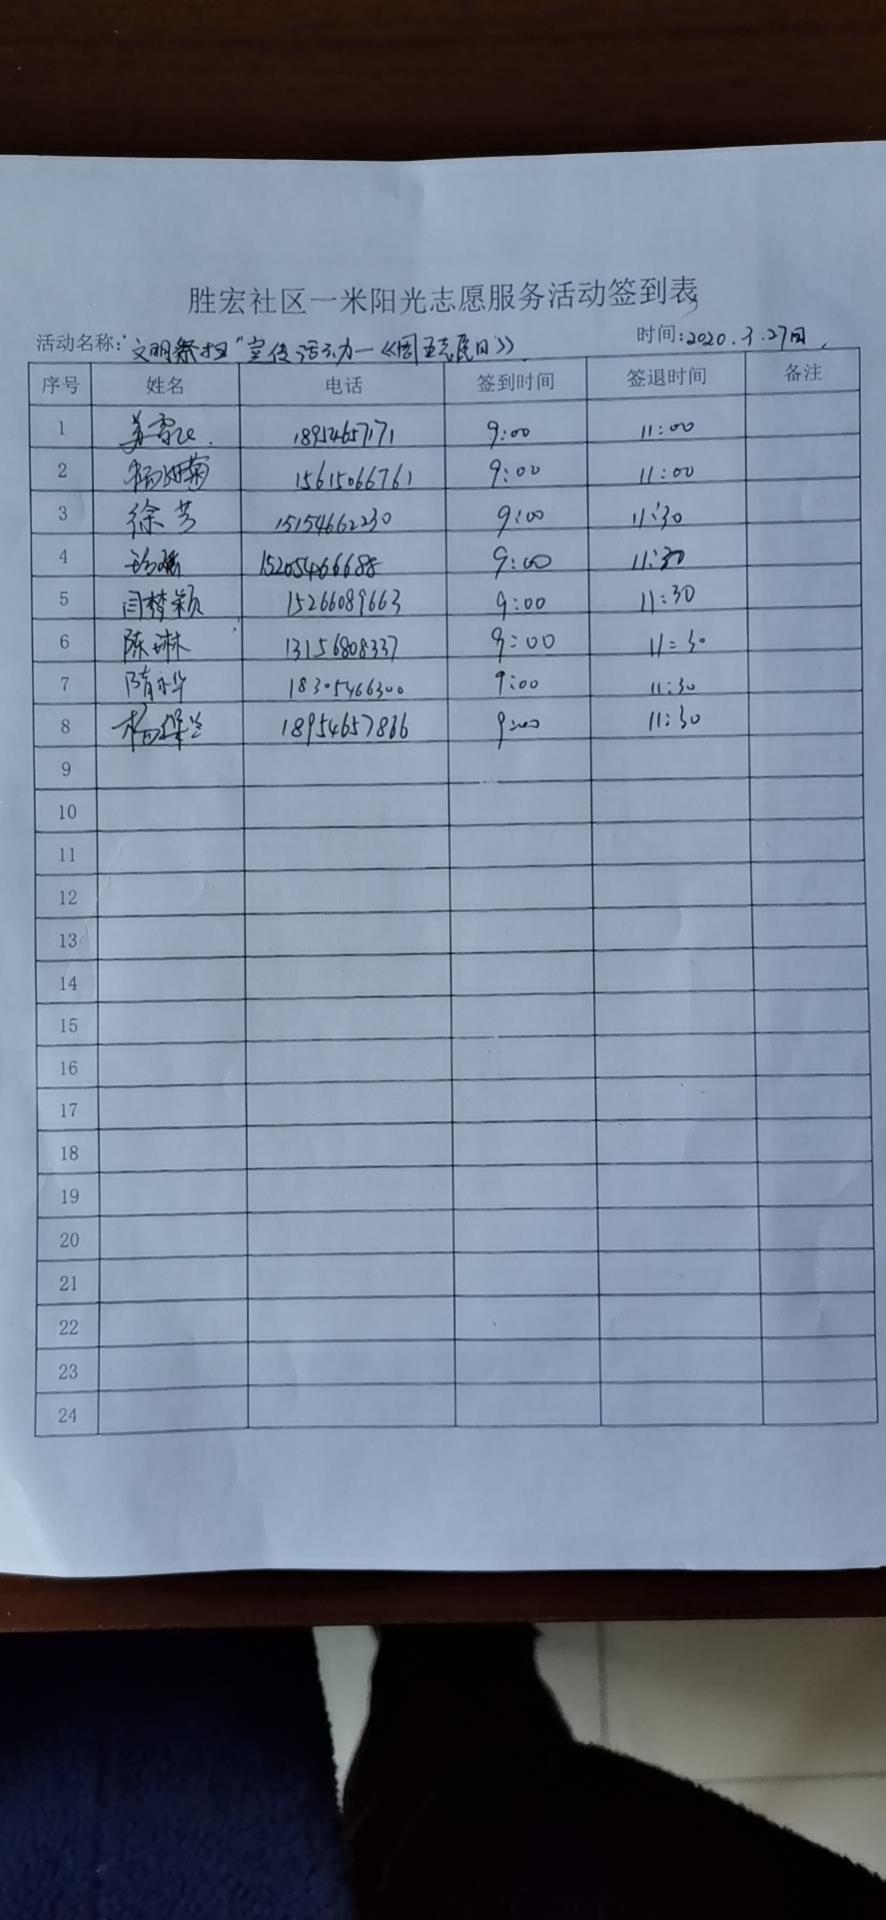 胜宏社区一米阳光志愿服务活动签到表
活动名称:“文明祭扫”宣传活动—《周五志愿日》 时间:2020.3.27日
序号 姓名 电话 签到时间 签退时间 备注
1 18954657171 9:00 11:00
2 15615066761 9:00 11:00
3 徐芳 15154662230 9:00 11:30
4 15205466688 9:00 11:30
5 闫梦颖 15266089663 9:00 11:30
6 陈琳 13156808337 9:00 11:30
7 隋永华 18305466300 9:00 11:30
8 18954657866 9:00 11:30
9
10
11
12
13
14
15
16
17
18
19
20
21
22
23
24